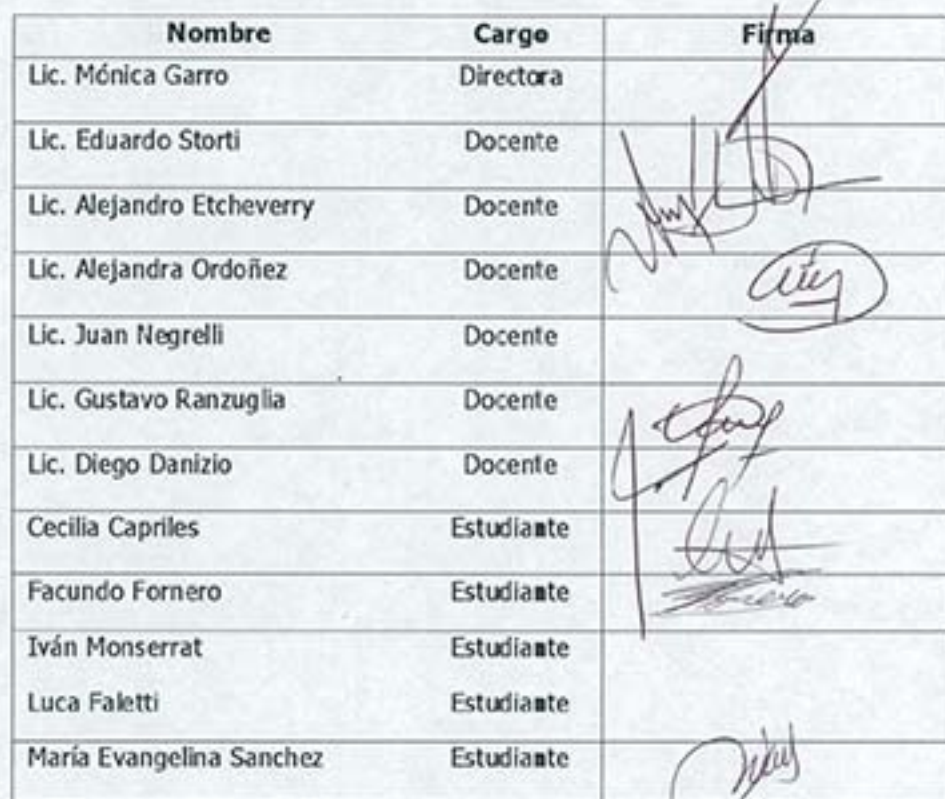 Nombre Cargo Firma
Lic. Mónica Garro Directora
Lic. Eduardo Storti Docente
Lic. Alejandro Etcheverry Docente
Lic. Alejandra Ordoñez Docente
Lic. Juan Negrelli Docente
Lic. Gustavo Ranzuglia Docente
Lic. Diego Danizio Docente
Cecilia Capriles Estudiante
Facundo Fornero Estudiante
Iván Monserrat Estudiante
Luca Faletti Estudiante
María Evangelina Sanchez Estudiante